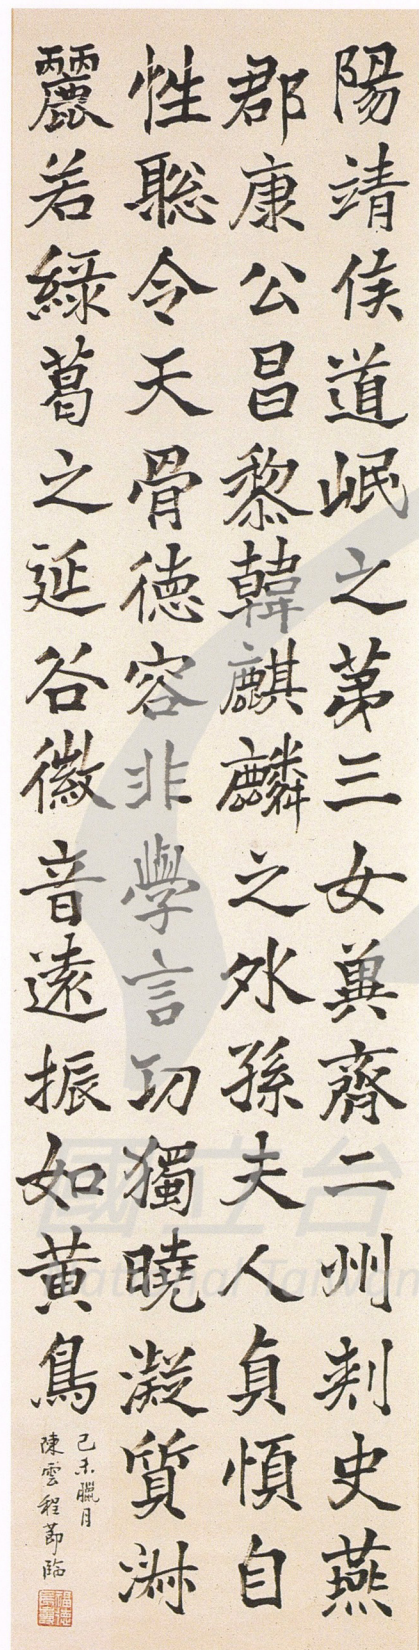 陽靖侯道岷之苐三女兾齊二州刾史燕
郡康公昌黎韓麒麟之外孫夫人貞慎自
性聡令天骨徳容非學言功獨曉凝質淋
麗若綠葛之延谷徽音遠振如黃鳥
己未臘月
陳雲程節臨
國立台
National Taiwan